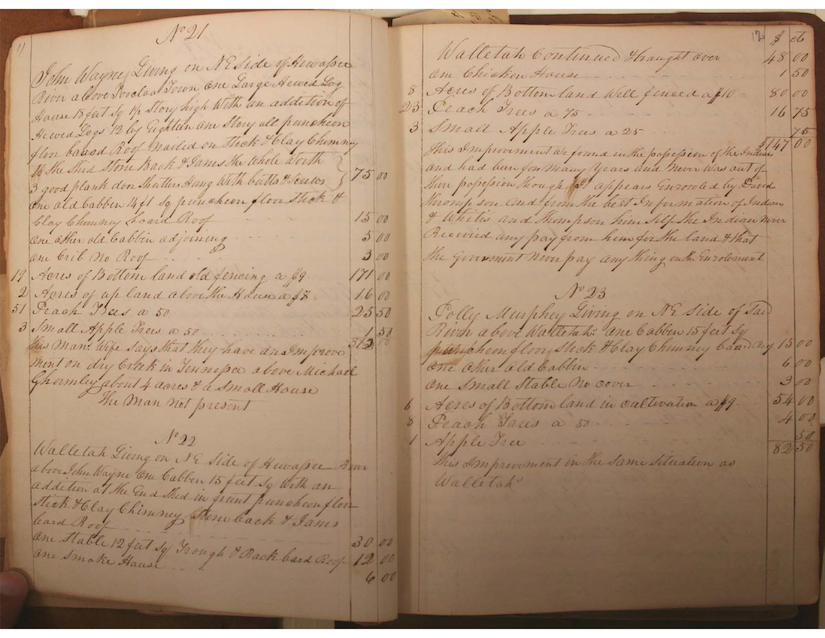 11
No 21
John Wayne Living on N E side of Hewassee
River above Town One Large Hewed Log
House 18 feet Sq 1½ Story high With an addition of
Hewed Logs 12 by Eighteen one Story all puncheon
floor board Roof Nailed on Stick & Clay Chimney
to the Shed Stone Back & Jams the Whole Worth
3 good plank door Shutters Hung With butts & Screws 75 00
One old Cabben 14 ft Sq puncheon floor Stick &
Clay Chimney board Roof 15 00
One other old Cabbin adjoining 5 00
One Crib No Roof 3 00
19 Acres of Bottom land old fencing a $9 171 00
2 Acres of up land above the House a $8 16 00
51 Peach Trees a 50 25 50
3 Small Apple Trees a 50 1 50
312 00
This Mans Wife Says that they have an Improve
ment on dry Creek in Tennessee above Michael
Ghormley about 4 acres & a Small House
The Man Not present
No 22
Walletah Living on N E Side of Hewassee River
above John Wayne One Cabben 15 feet Sq With an
addition at the End Shed in front puncheon floor
Stick & Clay Chimney Stone back & Jams
board Roof 30 00
One Stable 12 feet Sq Trough & Rack board Roof 12 00
One Smoke House 6 00
12
$ cts
Walletah Continued & braught over 48 00
One Chicken House 1 50
8 Acres of Bottom land Well fenced a $10 80 00
23 Peach Trees a 75 16 75
3 Small Apple Trees a 25 75
$147 00
This Improvement as found in the possession of the Indian
and had been for Many Years and Never Was out of
their possession though it appears Enrowled by David
thompson and from the best Information of Indian
& Whites and Thompson him Self The Indian Never
Received any pay from him for the land & that
the government Never pay any thing on the Enrolement
No 23
Polly Murphey Living on N E Side of Said
River above Walletah One Cabben 15 feet Sq
puncheon floor Stick & Clay Chimney board Roof 15 00
One other old Cabben 6 00
One Small Stable No cover 3 00
6 Acres of Bottom land in cultivation a $9 54 00
8 Peach Trees a 50 4 00
1 Apple Tree 50
82 50
This Improvement in the Same Situation as
Walletah's